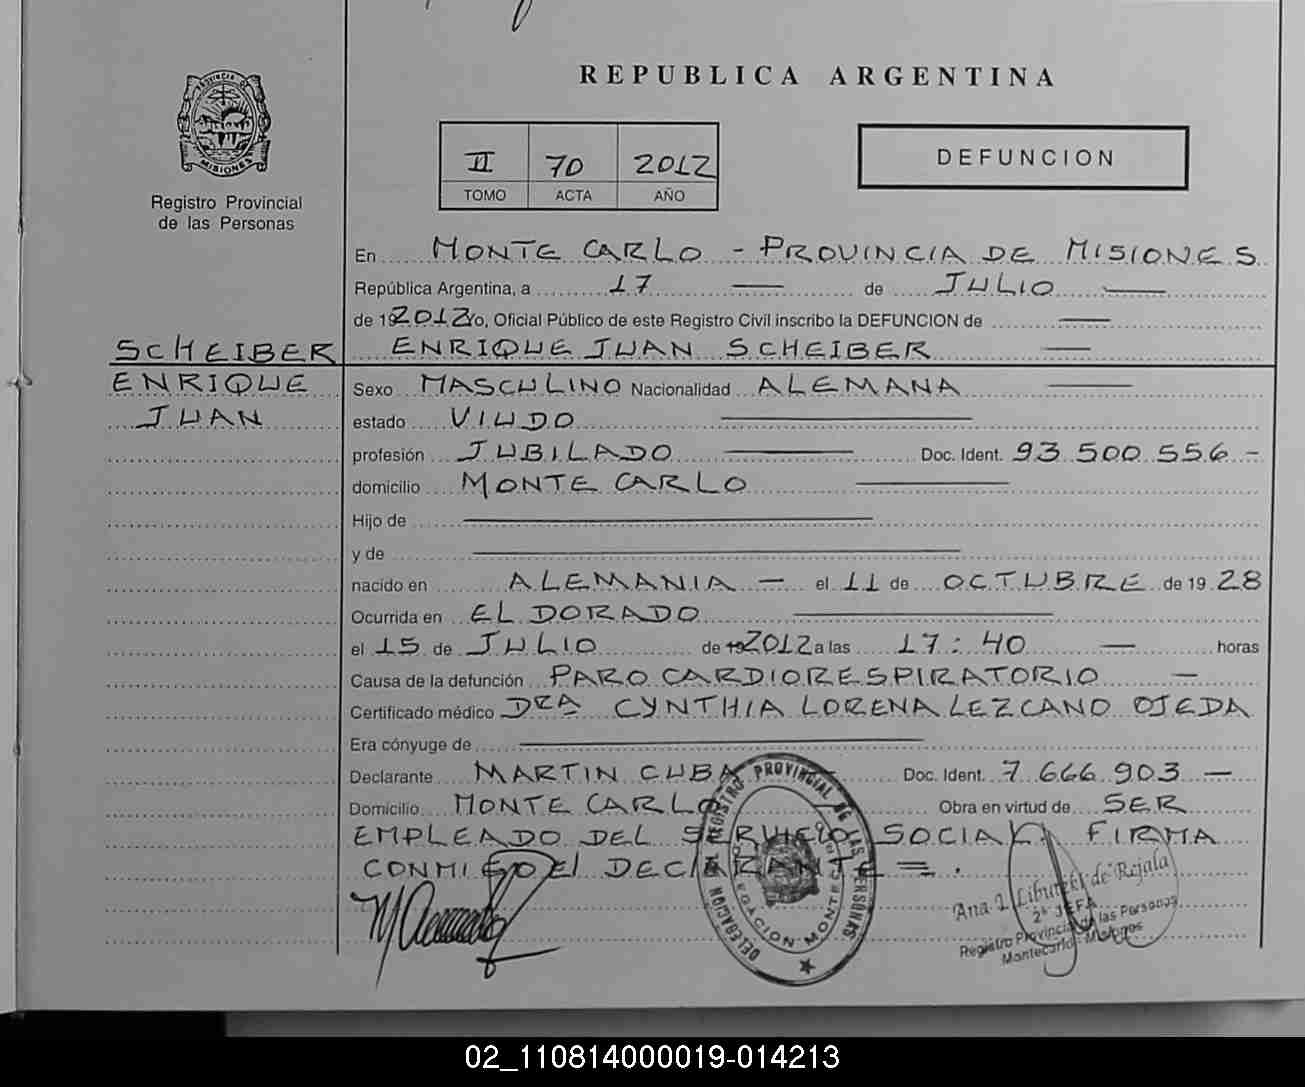 PROVINCIA DE
MISIONES
Registro Provincial
de las Personas
REPUBLICA ARGENTINA
II 70 2012
TOMO ACTA AÑO
DEFUNCION
En MONTE CARLO - PROVINCIA DE MISIONES
República Argentina, a 17 — de JULIO —
de 192012 Yo, Oficial Público de este Registro Civil inscribo la DEFUNCION de —
SCHEIBER ENRIQUE JUAN SCHEIBER —
ENRIQUE Sexo MASCULINO Nacionalidad ALEMANA —
JUAN estado VIUDO —
profesión JUBILADO — Doc. Ident. 93 500 556 -
domicilio MONTE CARLO —
Hijo de —
y de —
nacido en ALEMANIA — el 11 de OCTUBRE de 19 28
Ocurrida en ELDORADO —
el 15 de JULIO de 19 2012 a las 17:40 — horas
Causa de la defunción PARO CARDIORESPIRATORIO —
Certificado médico DRA CYNTHIA LORENA LEZCANO OJEDA
Era cónyuge de —
Declarante MARTIN CUBA — Doc. Ident. 7 666 903 —
Domicilio MONTE CARLO Obra en virtud de SER
EMPLEADO DEL SERVICIO SOCIAL. FIRMA
CONMIGO El DECLARANTE =.
DELEGACION DEL REGISTRO PROVINCIAL DE LAS PERSONAS
DELEGACION MONTECARLO
Ana I. de Rejala
2ª JEFA
Registro Provincial de las Personas
Montecarlo - Misiones
02_110814000019-014213